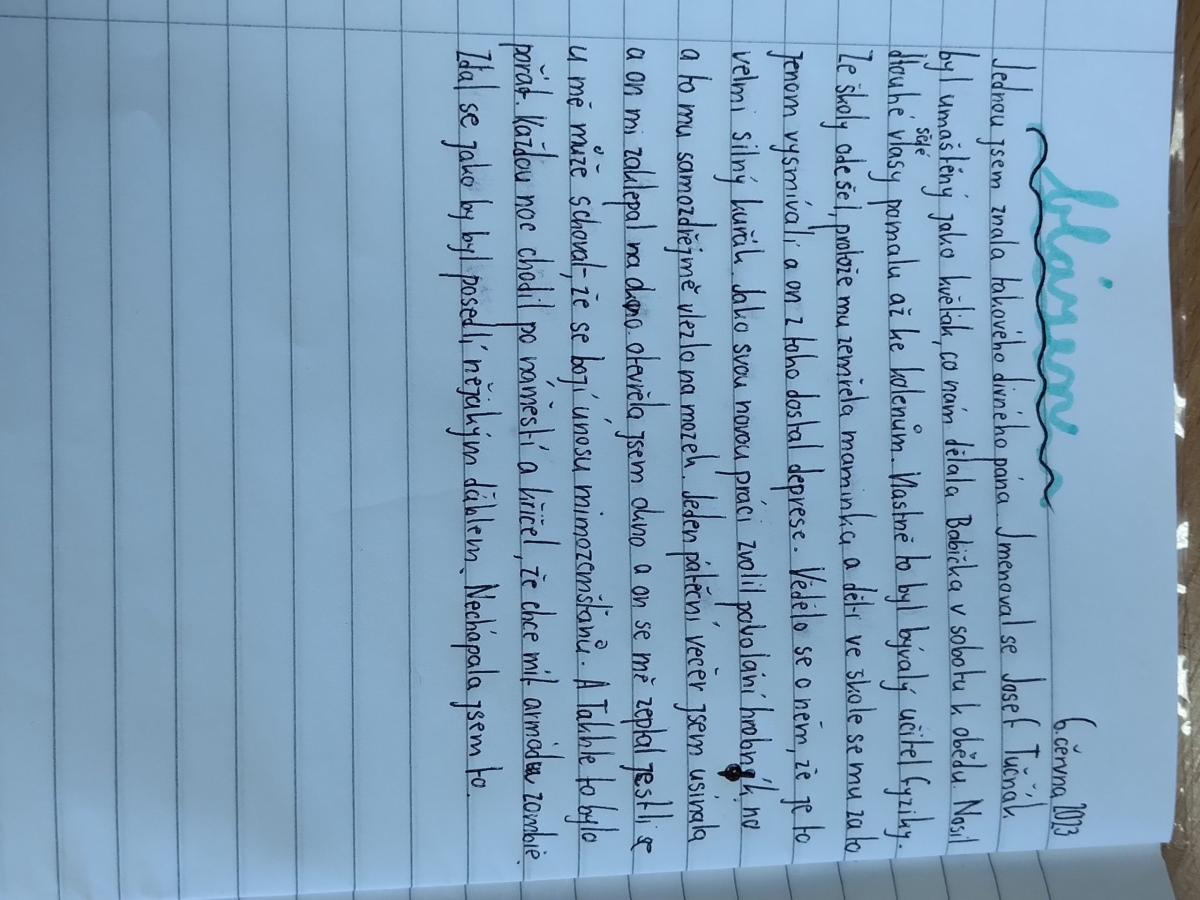 6. června 2023
blázen
Jednou jsem znala takového divného pána. Jmenoval se Josef Tučňák
byl umaštěný jako květák, co nám dělala Babička v sobotu k obědu. Nosil
šedé
dlouhé vlasy pomalu až ke kolenům. Vlastně to byl bývalý učitel fyziky.
Ze školy odešel, protože mu zemřela maminka a děti ve škole se mu za to
jenom vysmívali a on z toho dostal deprese. Vědělo se o něm, že je to
velmi silný kuřák. Jako svou novou práci zvolil povolání hrobník. no
a to mu samozdřejmě vlezlo na mozek. Jeden páteční večer jsem usínala
a on mi zaklepal na okno. otevřela jsem okno a on se mě zeptal jestli se
u mě může schovat, že se bojí únosu mimozemšťanů. A Takhle to bylo
pořád. Každou noc chodil po náměstí a křičel, že chce mít armádu zombie.
Zdál se jako by byl posedlí nějakým ďáblem. Nechápala jsem to.